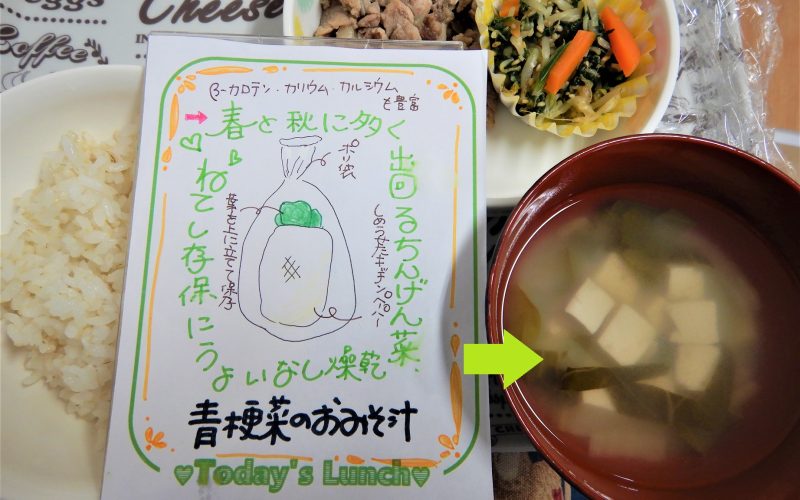 eggs
Cheese
Coffee
β-カロテン・カリウム・カルシウム
も豊富
春と秋に多く
出回るちんげん菜、
乾燥しないよ
うに保存してね
ポリ袋
葉を上に立てて保存
しめらせたキッチンペーパー
青梗菜のおみそ汁
Today's Lunch